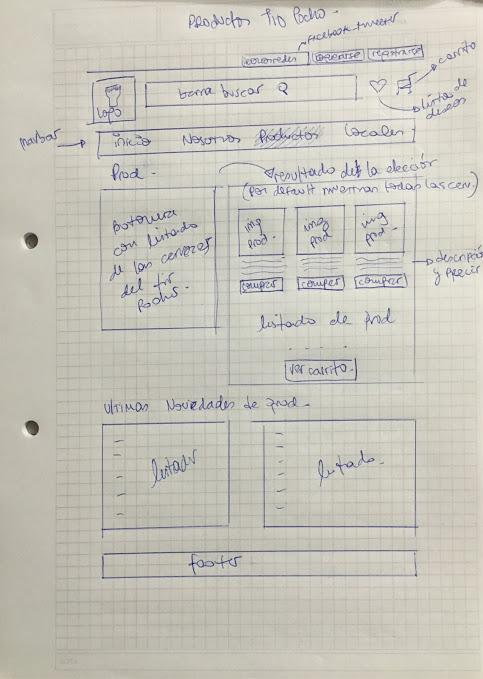 Productos Tío Pocho -
Facebook + tweeter
loguearse registrarse
carrito
Logo
barra buscar
Lista de
deseos
navbar
inicio Nosotros Productos Locales
Prod -
resultado de la elección
(Por default muestran todas las cerv.)
Botonera
con listado
de las cervezas
del tío
Pocho.
img
prod.
img
prod
img
prod.
descripción
y precio
comprar comprar comprar
listado de prod
. . . .
ver carrito.
Ultimas Novedades de prod -
listado
listado.
footer